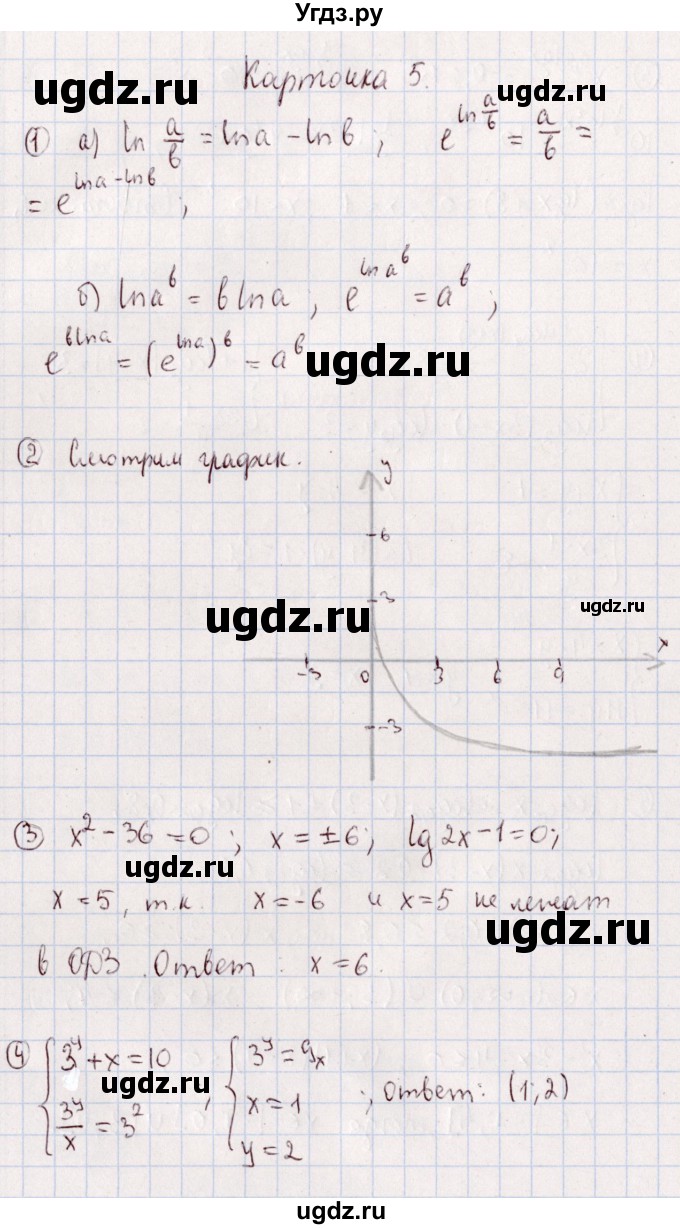 Угдз.ру
ugdz.ru
Карточка 5.
ugdz.ru
① а) ln a/b = ln a − ln b ; e^(ln a/b) = a/b =
= e^(ln a − ln b) ;
б) ln a^b = b ln a ; e^(ln a^b) = a^b ;
e^(b ln a) = (e^(ln a))^b = a^b
ugdz.ru
② Смотрим график.
y
6
3
ugdz.ru
ugdz.ru
x
-3 0 3 6 9
-3
③ x² − 36 = 0 ; x = ±6 ; lg 2x − 1 = 0 ;
ugdz.ru
x = 5 , т.к. x = −6 и x = 5 не лежат
ugdz.ru
в ОДЗ . Ответ : x = 6.
④ { 3^y + x = 10 { 3^y = 9x
ugdz.ru
3^y/x = 3² , x = 1 ; Ответ: (1; 2)
y = 2
ugdz.ru